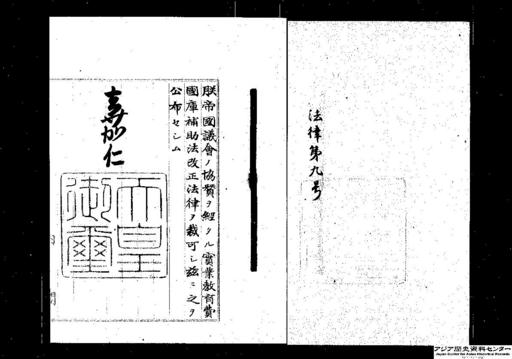 法律第九号
朕帝國議會ノ協賛ヲ經タル實業教育費
國庫補助法改正法律ヲ裁可シ茲ニ之ヲ
公布セシム
嘉仁
天皇
御璽
アジア歴史資料センター
Japan Center for Asian Historical Records